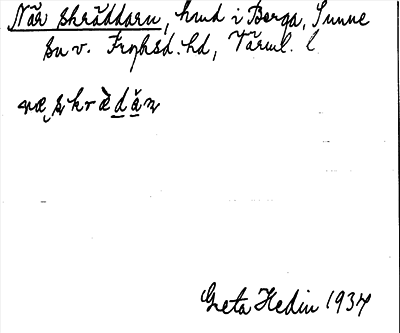 När skräddarn, hmd i Berga, Sunne
sn v. Fryksd. hd, Värml. l
næ̨ skrædạ̈n
Greta Hedin 1934